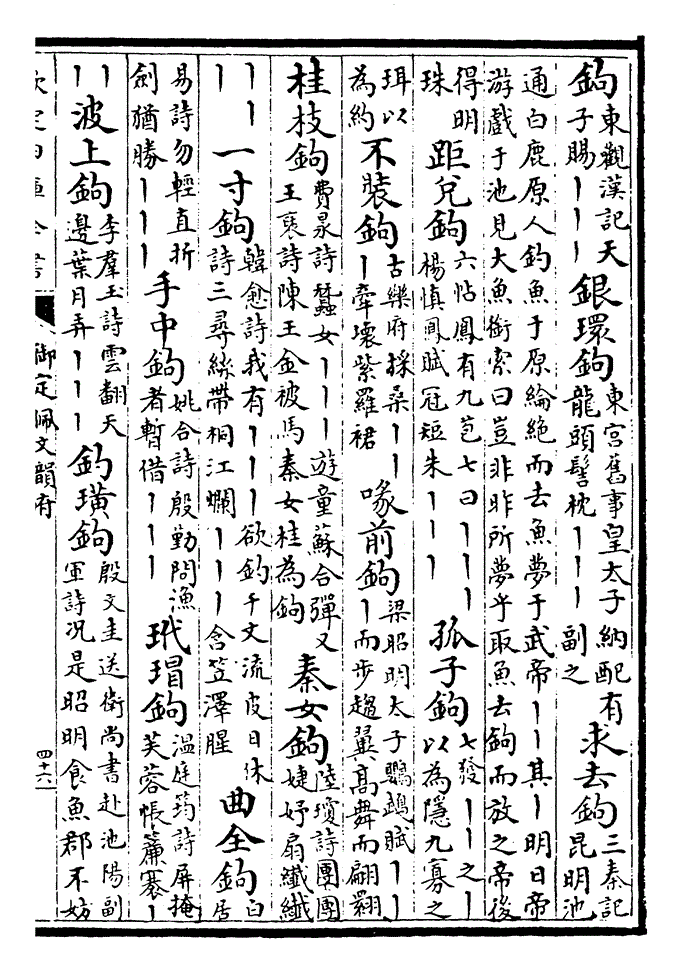 鉤東觀漢記天子賜丨丨丨銀環鉤東宮舊事皇太子納配有龍頭髻枕丨丨丨副之求去鉤三秦記昆明池
通白鹿原人釣魚于原綸絕而去魚夢于武帝丨丨其丨明日帝
游戲于池見大魚銜索曰豈非昨所夢乎取魚去鉤而放之帝後
得明珠距兌鉤六帖鳳有九苞七曰丨丨丨楊慎鳳賦冠短朱丨丨丨孤子鉤七發丨丨之丨以為隱九寡之
珥以為約不裝鉤古樂府採桑丨丨丨牽壞紫羅裙喙前鉤梁昭明太子鸚鵡賦丨丨丨而步趨翼高舞而翩翾
桂枝鉤費昶詩蠶女丨丨丨遊童蘇合彈又王褒詩陳王金被馬秦女桂為鉤秦女鉤陸瓊詩團團婕妤扇纖纖
丨丨丨一寸鉤韓愈詩我有丨丨丨欲釣千丈流皮日休詩三尋絲帶桐江爛丨丨丨含笠澤腥曲全鉤白居
易詩勿輕直折劍猶勝丨丨丨手中鉤姚合詩殷勤問漁者暫借丨丨丨玳瑁鉤溫庭筠詩屏掩芙蓉帳簾褰丨
丨丨波上鉤李羣玉詩雲翻天邊葉月弄丨丨丨釣璜鉤殷文圭送衛尚書赴池陽副軍詩况是昭明食魚郡不妨
欽定四庫全書
御定佩文韻府
四十六